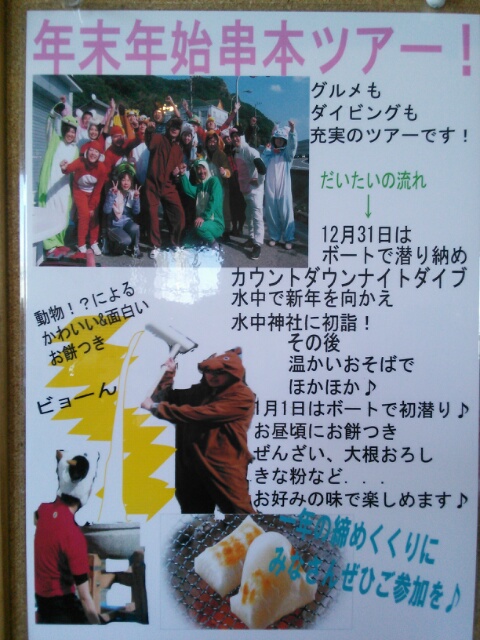 年末年始串本ツアー！
グルメも
ダイビングも
充実のツアーです！
だいたいの流れ
↓
12月31日は
ボートで潜り納め
カウントダウンナイトダイブ
水中で新年を向かえ
水中神社に初詣！
その後
温かいおそばで
ほかほか♪
動物！？による
かわいい&面白い
お餅つき
ビョーん
1月1日はボートで初潜り♪
お昼頃にお餅つき
ぜんざい、大根おろし
きな粉など．．．
お好みの味で楽しめます♪
一年の締めくくりに
みなさんぜひご参加を♪